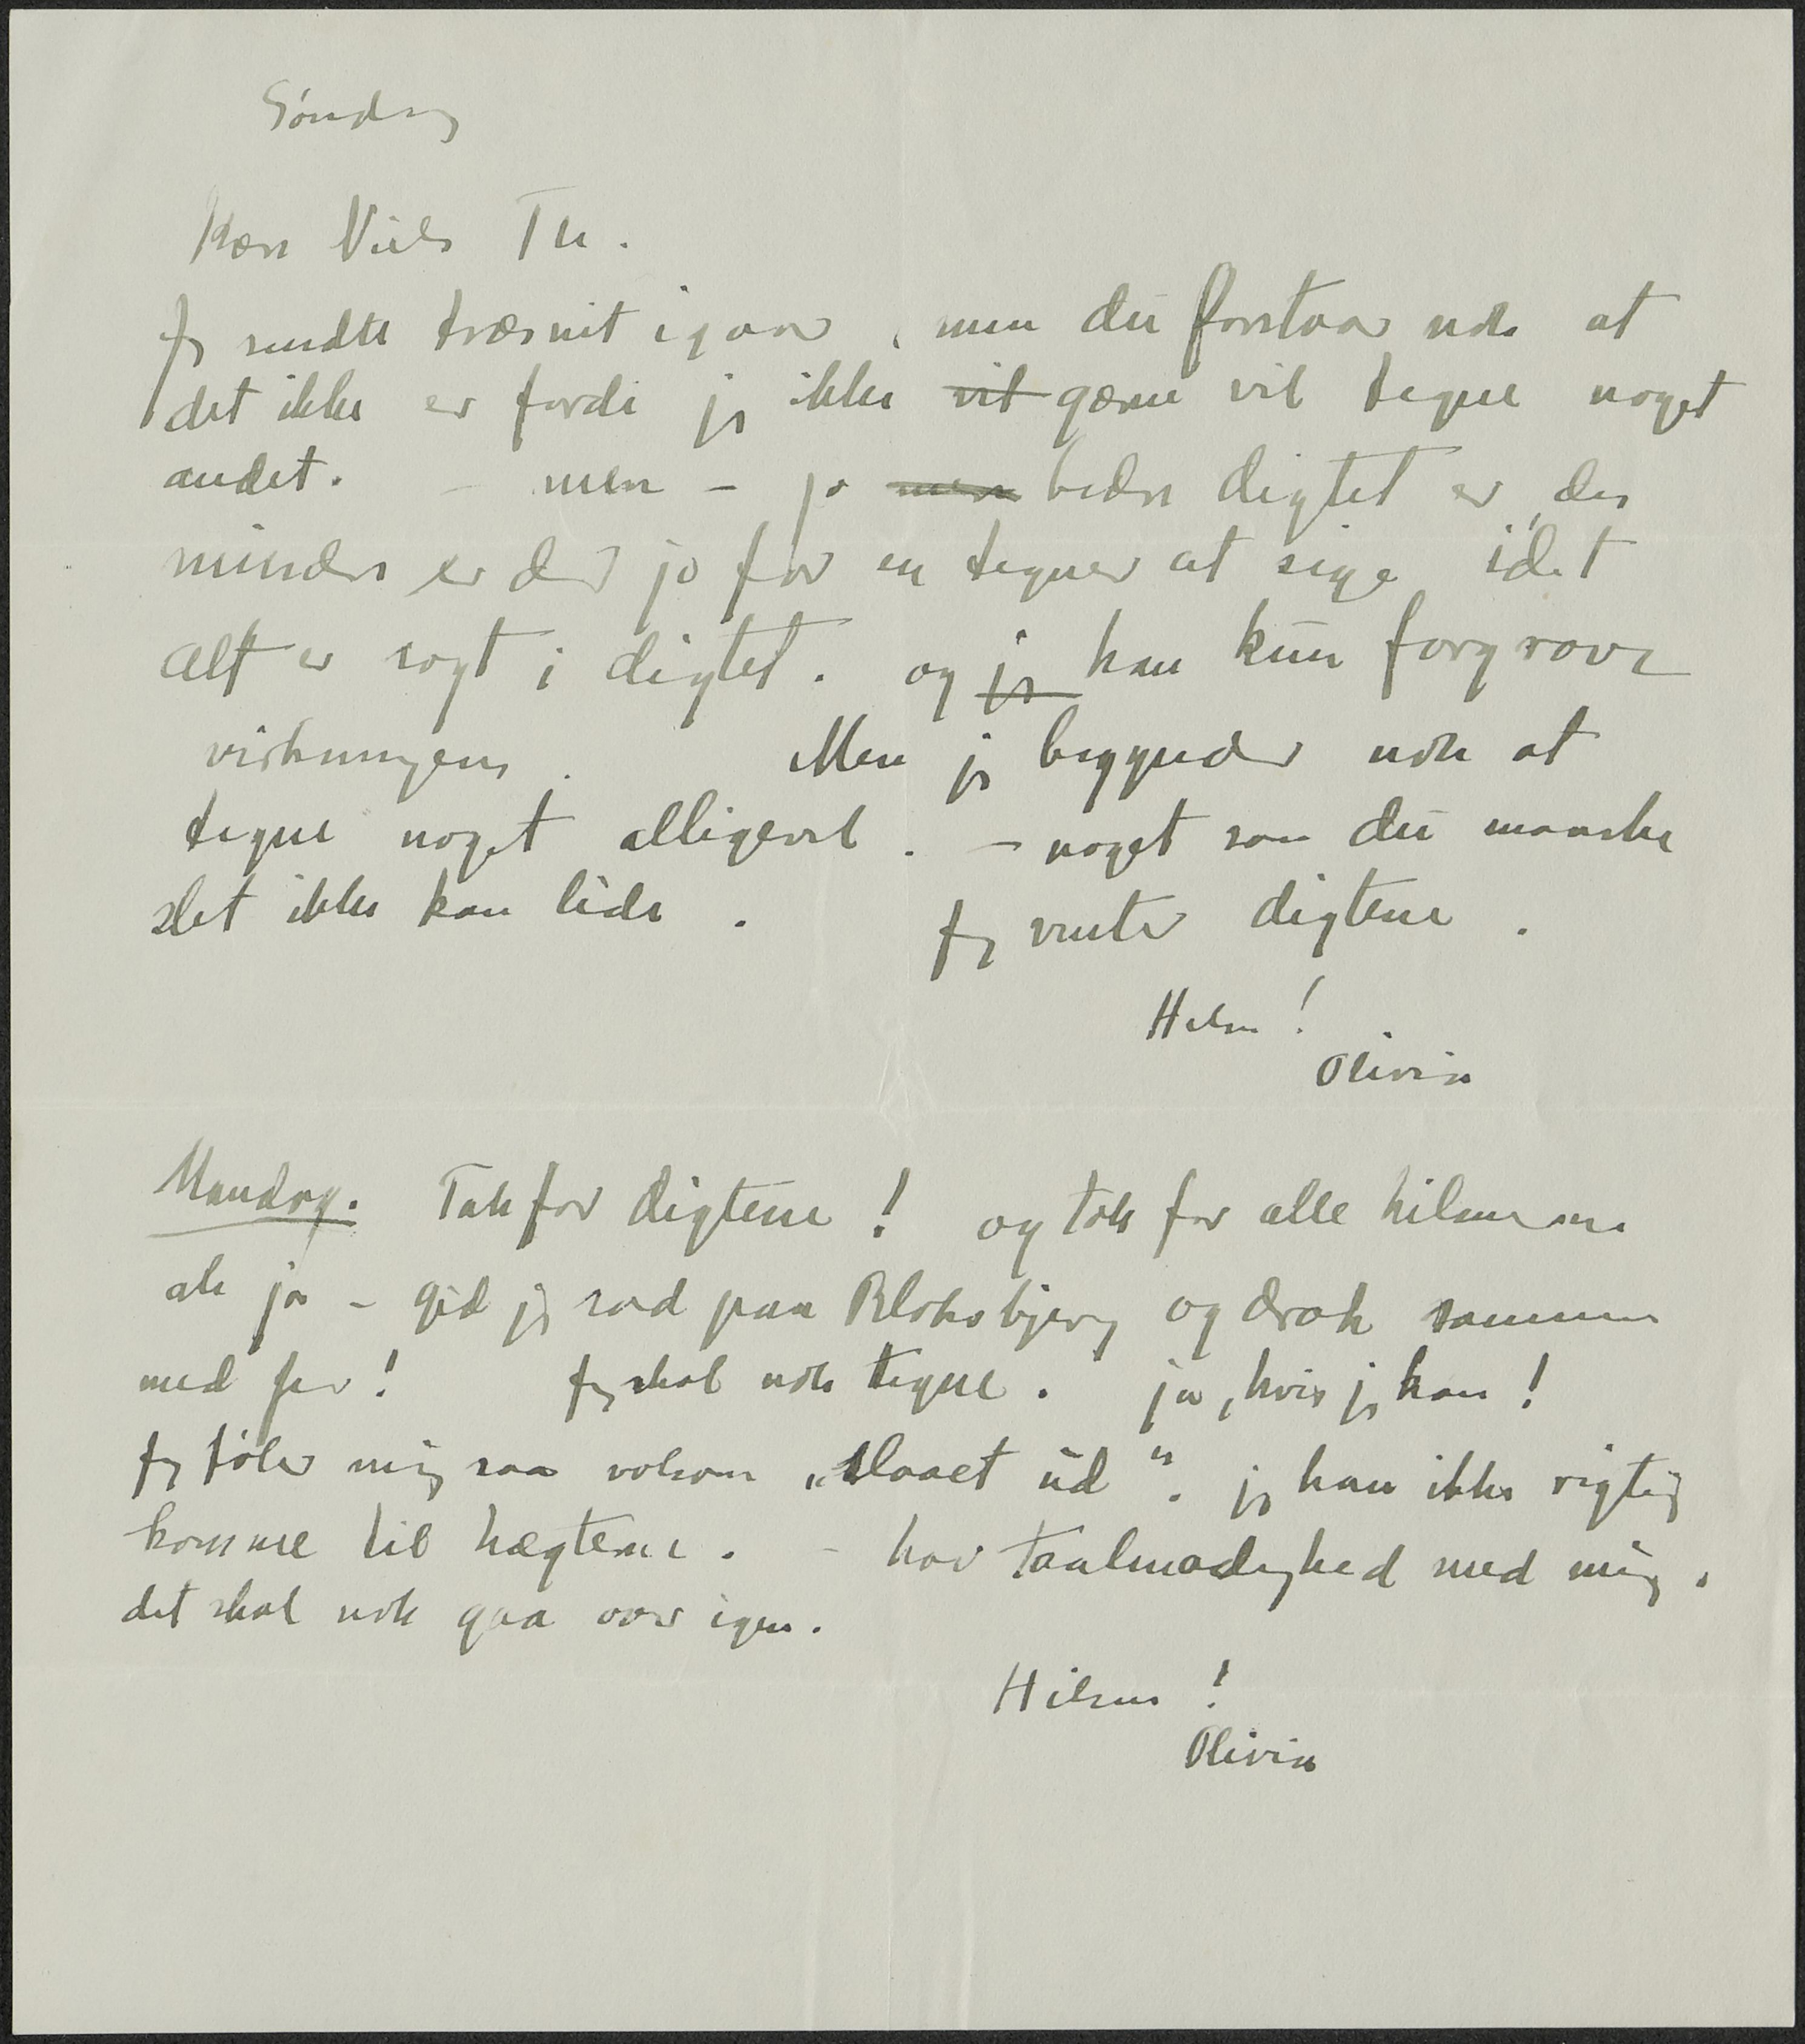 Søndag
Kære Niels Th.
Jeg sendte træsnit igaar, men du forstaar nok at
det ikke er fordi jeg ikke vil gærne vil tegne noget
andet. – men – jo men bedre digtet er, des
mindre er der jo for en tegner at sige idet
alt er sagt i digtet. og jeg kan kun forgrove
virkningen. Men jeg begynder nok at
tegne noget alligevel. – noget som du maaske
slet ikke kan lide. Jeg venter digtene.
Hilsen!
Olivia
Mandag. Tak for digtene! og tak for alle hilsnerne
ak ja – gid jeg sad paa Bloksbjerg og drak sammen
med jer! Jeg skal nok tegne. ja, hvis jeg kan!
Jeg føler mig saa volsom „slaaet ud“. jeg kan ikke rigtig
komme til hægterne. – hav taalmodighed med mig.
det skal nok gaa over igen.
Hilsen!
Olivia